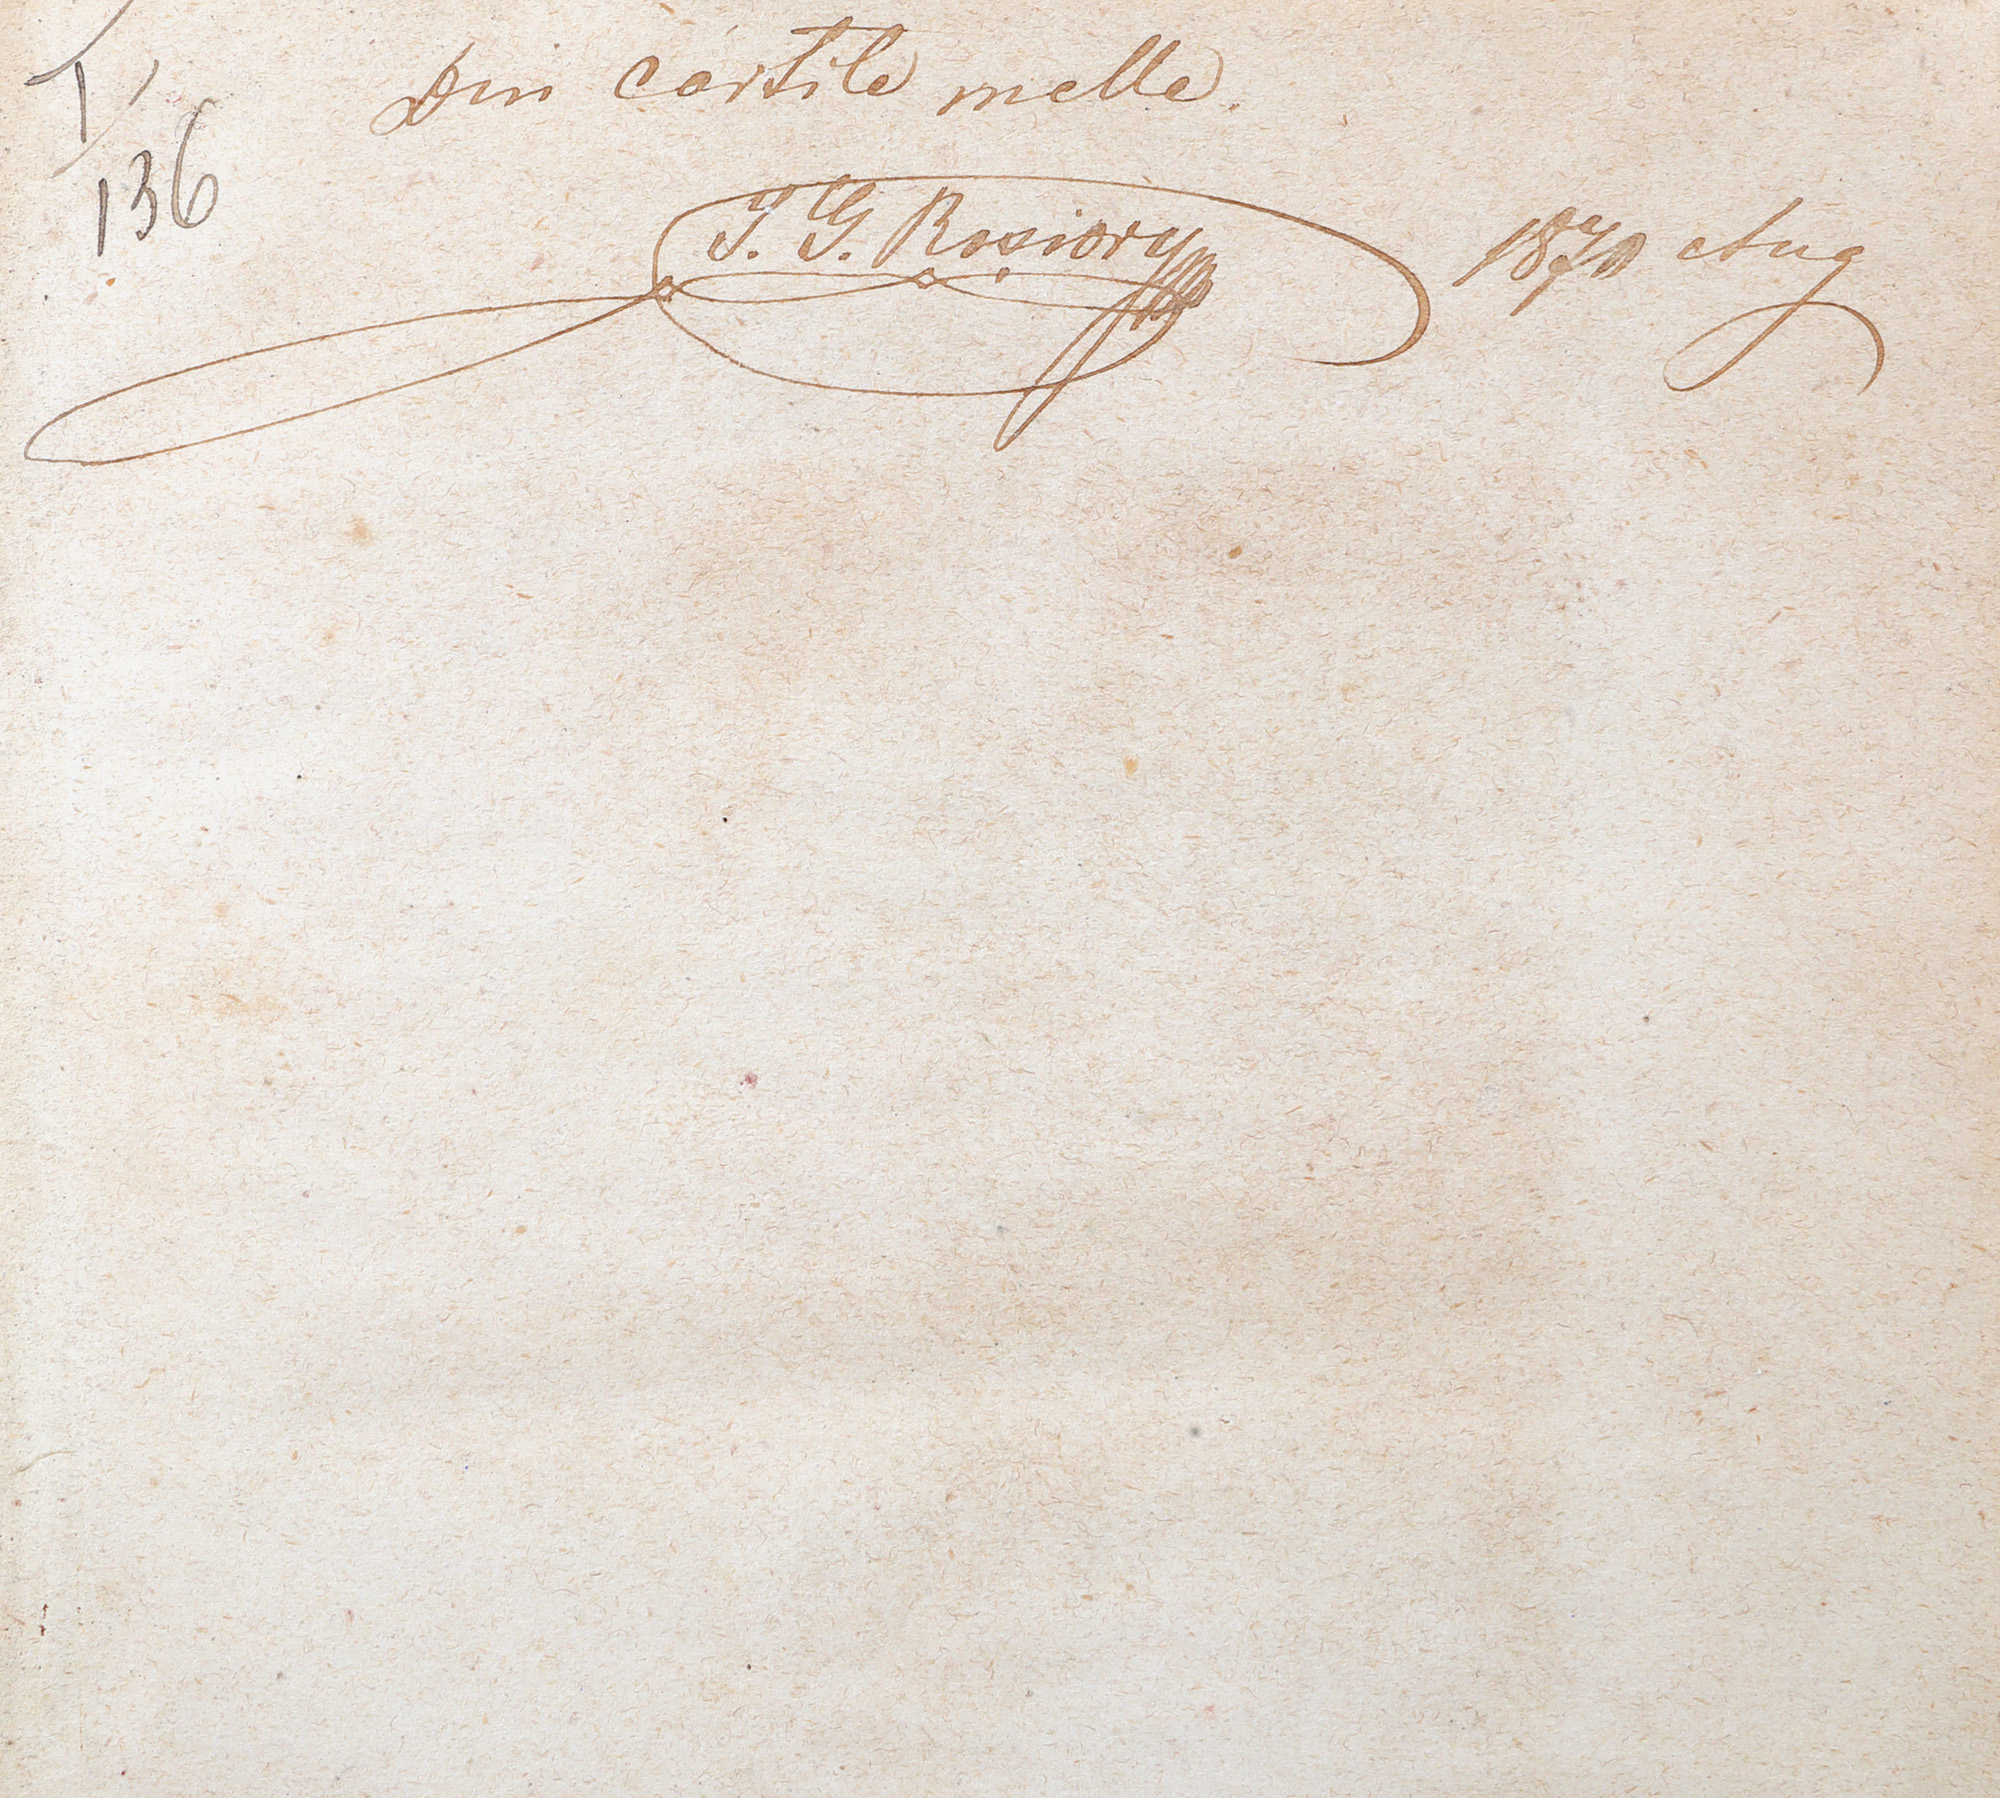 I/
136
Din cartile melle.
I. G. Rosiory 1870 Aug